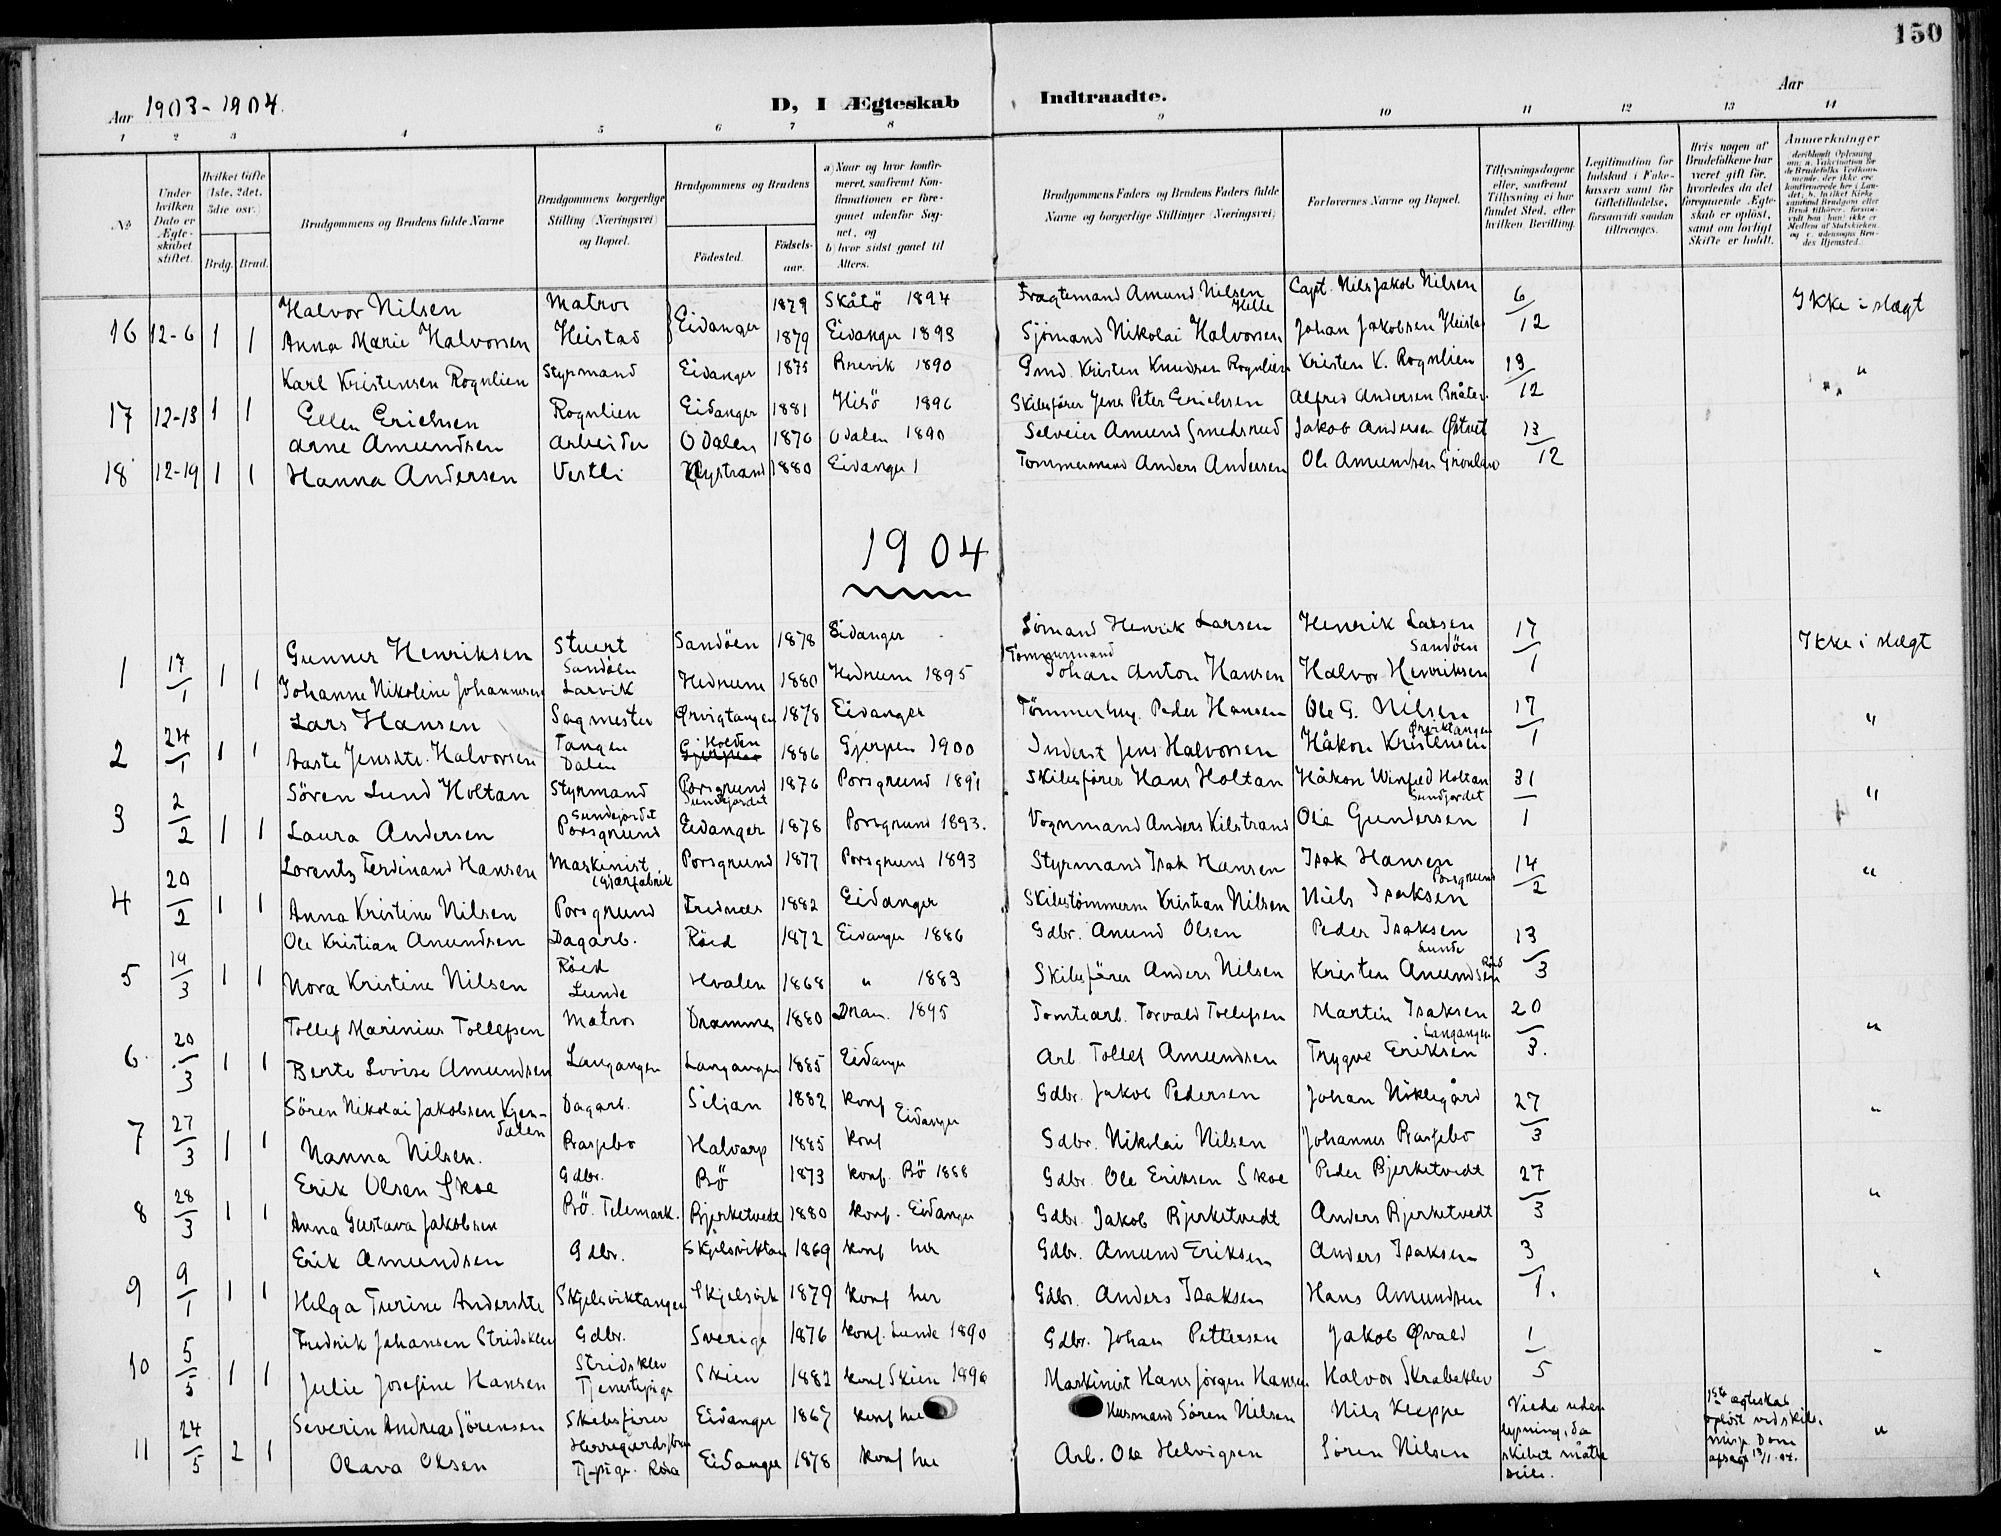 150
Aar 1903-1904.
D, I Ægteskab Indtraadte.
Aar
1 2 3 4 5 6 7 8 9 10 11 12 13 14
No
Under hvilken Dato er Ægteskabet stiftet.
Hvilket Gifte (1ste, 2det, 3die osv.)
Brdg. Brud.
Brudgommens og Brudens fulde Navne
Brudgommens borgerlige Stilling (Næringsvei) og Bopæl.
Brudgommens og Brudens
Födested. Födsels-aar.
a) Naar og hvor konfirmeret, saafremt Konfirmationen er foregaaet udenfor Sognet, og
b) hvor sidst gaaet til Alters.
Brudgommens Faders og Brudens Faders fulde Navne og borgerlige Stillinger (Næringsvei)
Forlovernes Navne og Bopæl.
Tillysningsdagene eller, saafremt Tillysning ei har fundet Sted, efter hvilken Bevilling.
Legitimation for Indskud i Enkekassen samt for Giftetilladelse, forsaavidt saadan tiltrænges.
Hvis nogen af Brudefolkene har været gift før, hvorledes da det foregaaende Ægteskab er opløst, samt om lovligt Skifte er holdt.
Anmerkninger
Halvor Nilsen Matros 1879 Skåtö 1894 Fragtemand Amund Nilsen Helle Capt. Nils Jakob Nilsen 6 Ikke i slægt
16 12-6 1 1 Anna Marie Halvorsen Heistad Eidanger 1879 Eidanger 1893 Sjömand Nikolai Halvorsen Johan Jakobsen Heistad 12
Karl Kristensen Rognlien Styrmand Eidanger 1875 Brevik 1890 Gmd. Kristen Knudsen Rognlien Kristen K. Rognlien 13 "
17 12-13 1 1 Ellen Erichsen Rognlien Eidanger 1881 Hisö 1896 Skibsfører Jens Peter Erichsen Alfred Andersen Bråten 12
Arne Amundsen Arbeider Odalen 1870 Odalen 1890 Selveier Amund Smedsrud Jakob Andersen Østvet 13
18 12-19 1 1 Hanna Andersen Vestli Nystrand 1880 Eidanger Tommermand Anders Andersen Ole Amundsen Grönland 12
1904
Gunner Henriksen Stuert Sandöen 1878 Eidanger Sömand Henrik Larsen Henrik Larsen Sandöen 17 Ikke i slægt
1 17/1 1 1 Johanne Nikoline Johannesen Sandöen Larvik Hedrum 1880 Hedrum 1895 Tommermand Johan Anton Hansen Halvor Henriksen 1
Lars Hansen Sagmester Ørvigtangen 1878 Eidanger Tömmerhug. Peder Hansen Ole G. Nilsen Ørviktangen 17 "
2 24/1 1 1 Aaste Jensdtr. Halvorsen Tangen Dalen Holden 1886 Gjerpen 1900 Inderst Jens Halvorsen Håkon Kristensen 1
Sören Lund Holtan Styrmand Porsgrund Sundjordet 1876 Porsgrund 1891 Skibsfører Hans Holtan Håkon Winfed Holtan Sundjordet 31 "
3 2/2 1 1 Laura Andersen Sundejordet Porsgrund Eidanger 1878 Porsgrund 1893. Vognmand Anders Kilstrand Ole Gundersen 1
Lorentz Ferdinand Hansen Maskinist Porsgrund 1877 Porsgrund 1893 Styrmand Isak Hansen Isak Hansen Porsgrund 14 "
4 20/2 1 1 Anna Kristine Nilsen Porsgrund Frednes 1882 Eidanger Skibstömmerm Kristian Nilsen Niels Isaksen 2
Ole Kristian Anundsen Dagarb. Röed 1872 Eidanger 1886 Gdbr. Anund Olsen Peder Isaksen Lunde 13
5 19/3 1 1 Nora Kristine Nilsen Röed Lunde Hvalen 1868 " 1883 Skibsfører Anders Nilsen Kristen Anundsen Röed 3
Tollef Marinius Tollefsen Matros Drammen 1880 Dram. 1895 Tomtearb. Torvald Tollefsen Martin Isaksen Langangen 20 "
6 20/3 1 1 Berte Lovise Amundsen Langangen Langangen 1885 Eidanger Arb. Tollef Amundsen Trygve Eriksen 3.
Sören Nikolai Jakobsen Kjendalen Dagarb. Siljan 1882 konf Eidanger Gdbr. Jakob Pedersen Johan Niklegård 27 "
7 27/3 1 1 Nanna Nilsen. Prasjebo Halvarp 1885 konf Gdbr. Nikolai Nilsen Johannes Prasjebo 3
Erik Olsen Skoe Gdbr. Bö 1873 konf. Bö 1888 Gdbr. Ole Eriksen Skoe Peder Bjerketvedt 27 "
8 28/3 1 1 Anna Gustava Jakobsen Bö. Telemark. Bjerketvedt 1880 konf. Eidanger Gdbr. Jakob Bjerketvedt Anders Bjerketvedt 3
Erik Amundsen Gdbr. Skjelsviktan 1869 konf her Gdbr. Amund Eriksen Anders Isaksen 3 "
9 9/1 1 1 Helga Turine Andersdtr Skjelsviktangen Skjelsvik 1879 konf her Gdbr. Anders Isaksen Hans Amundsen 1.
Fredrik Johansen Stridsklev Gdbr. Sverige 1876 konf. Lunde 1890 Gdbr. Johan Pettersen Jakob Øvald 1 "
10 5/5 1 1 Julie Josefine Hansen Stridsklev Tjenestepige Skien 1882 konf Skien 1896 Maskinist Hans Jörgen Hansen Halvor Skrabeklev 5
Severin Andreas Sörensen Skibsfører Eidanger 1867 konf her Husmand Sören Nilsen Nils Kleppe Viede uden lysning, da skibet måtte seile. 1ste ægteskab opløst ved skilsmisse Dom afsagt 13/1.04. "
11 24/5 2 1 Olava Olsen Tj.pige. Röra Eidanger 1878 konf her Arb. Ole Helvigsen Sören Nilsen